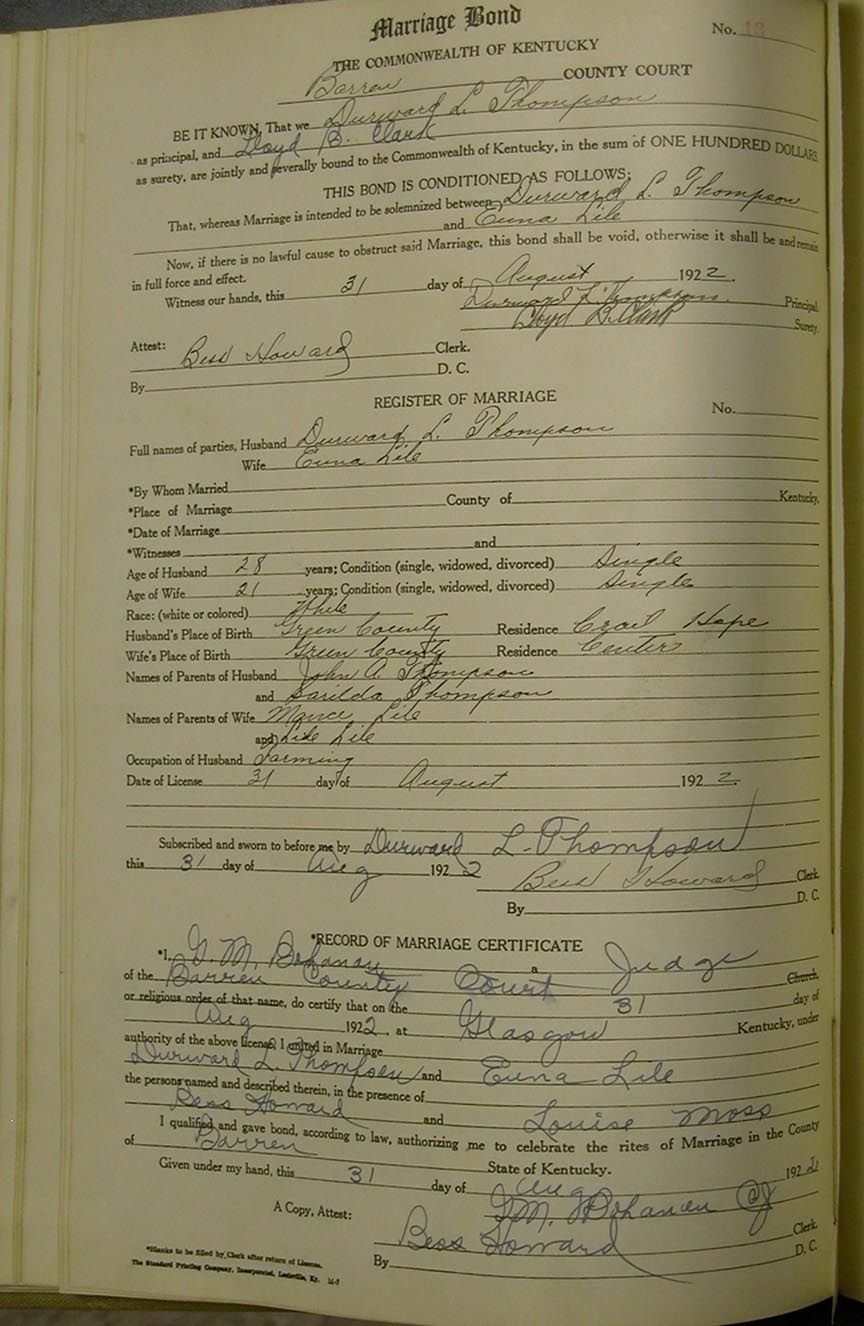 Marriage Bond
No. 13
THE COMMONWEALTH OF KENTUCKY
Barren COUNTY COURT
BE IT KNOWN, That we Durward L. Thompson
as principal, and Lloyd B. Clark
as surety, are jointly and severally bound to the Commonwealth of Kentucky, in the sum of ONE HUNDRED DOLLARS
THIS BOND IS CONDITIONED AS FOLLOWS:
That, whereas Marriage is intended to be solemnized between Durward L. Thompson
and Euna Lile
Now, if there is no lawful cause to obstruct said Marriage, this bond shall be void, otherwise it shall be and remain
in full force and effect.
Witness our hands, this 31 day of August 1922.
Durward L. Thompson Principal.
Lloyd B. Clark Surety.
Attest: Bess Howard Clerk.
By D. C.
REGISTER OF MARRIAGE
No.
Full names of parties, Husband Durward L. Thompson
Wife Euna Lile
*By Whom Married
*Place of Marriage County of Kentucky.
*Date of Marriage
*Witnesses and
Age of Husband 28 years; Condition (single, widowed, divorced) Single
Age of Wife 21 years; Condition (single, widowed, divorced) Single
Race: (white or colored) White
Husband's Place of Birth Green County Residence Crail Hope
Wife's Place of Birth Green County Residence Center
Names of Parents of Husband John A. Thompson
and Sarilda Thompson
Names of Parents of Wife Mance Lile
and Lile
Occupation of Husband Farming
Date of License 31 day of August 1922.
Subscribed and sworn to before me by Durward L. Thompson
this 31 day of Aug 1922
Bess Howard Clerk
By D. C.
*RECORD OF MARRIAGE CERTIFICATE
*I, G. M. Bohanan a Judge
of the Barren County Court Church
or religious order of that name, do certify that on the 31 day of
Aug 1922, at Glasgow Kentucky, under
authority of the above license, I united in Marriage
Durward L. Thompson and Euna Lile
the persons named and described therein, in the presence of
Bess Howard and Louise Moss
I qualified and gave bond, according to law, authorizing me to celebrate the rites of Marriage in the County
of Barren State of Kentucky.
Given under my hand, this 31 day of Aug 1922
G. M. Bohanan CJ
A Copy, Attest: Bess Howard Clerk
By D. C.
*Blanks to be filled by Clerk after return of License.
The Standard Printing Company, Incorporated, Louisville, Ky.